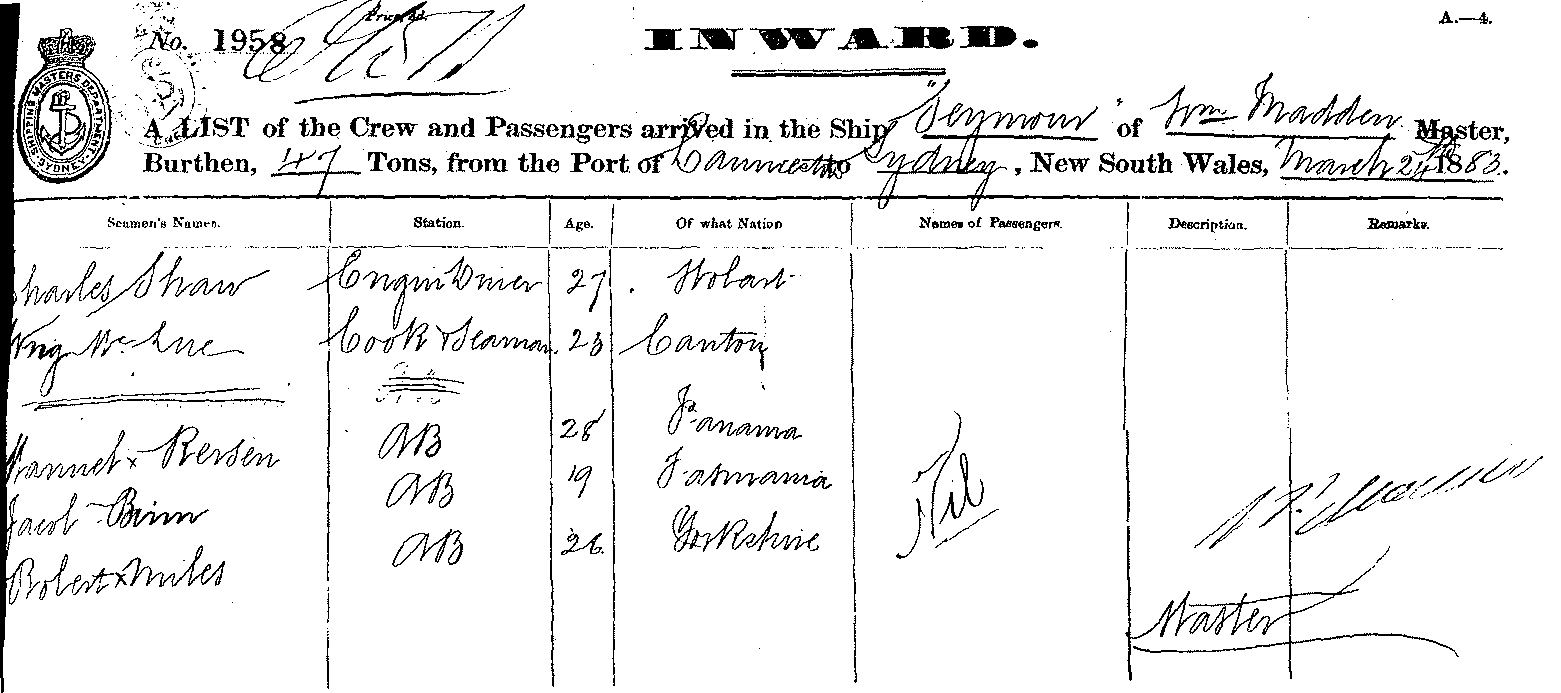 A.—4.
No. 1958
INWARD.
SHIPPING MASTERS DEPARTMENT SYDNEY
A LIST of the Crew and Passengers arrived in the Ship "Seymour" of Wm Madden Master,
Burthen, 47 Tons, from the Port of Launceston to Sydney, New South Wales, March 1883.
Seamen's Names. Station. Age. Of what Nation Names of Passengers. Description. Remarks.
Charles Shaw Engin Driver 27 Hobart
Cook & Seaman 23 Canton
AB 28 Panama
Jacob AB 19 Tasmania
Robert x Miles AB 26 Yorkshire
Nil
Master